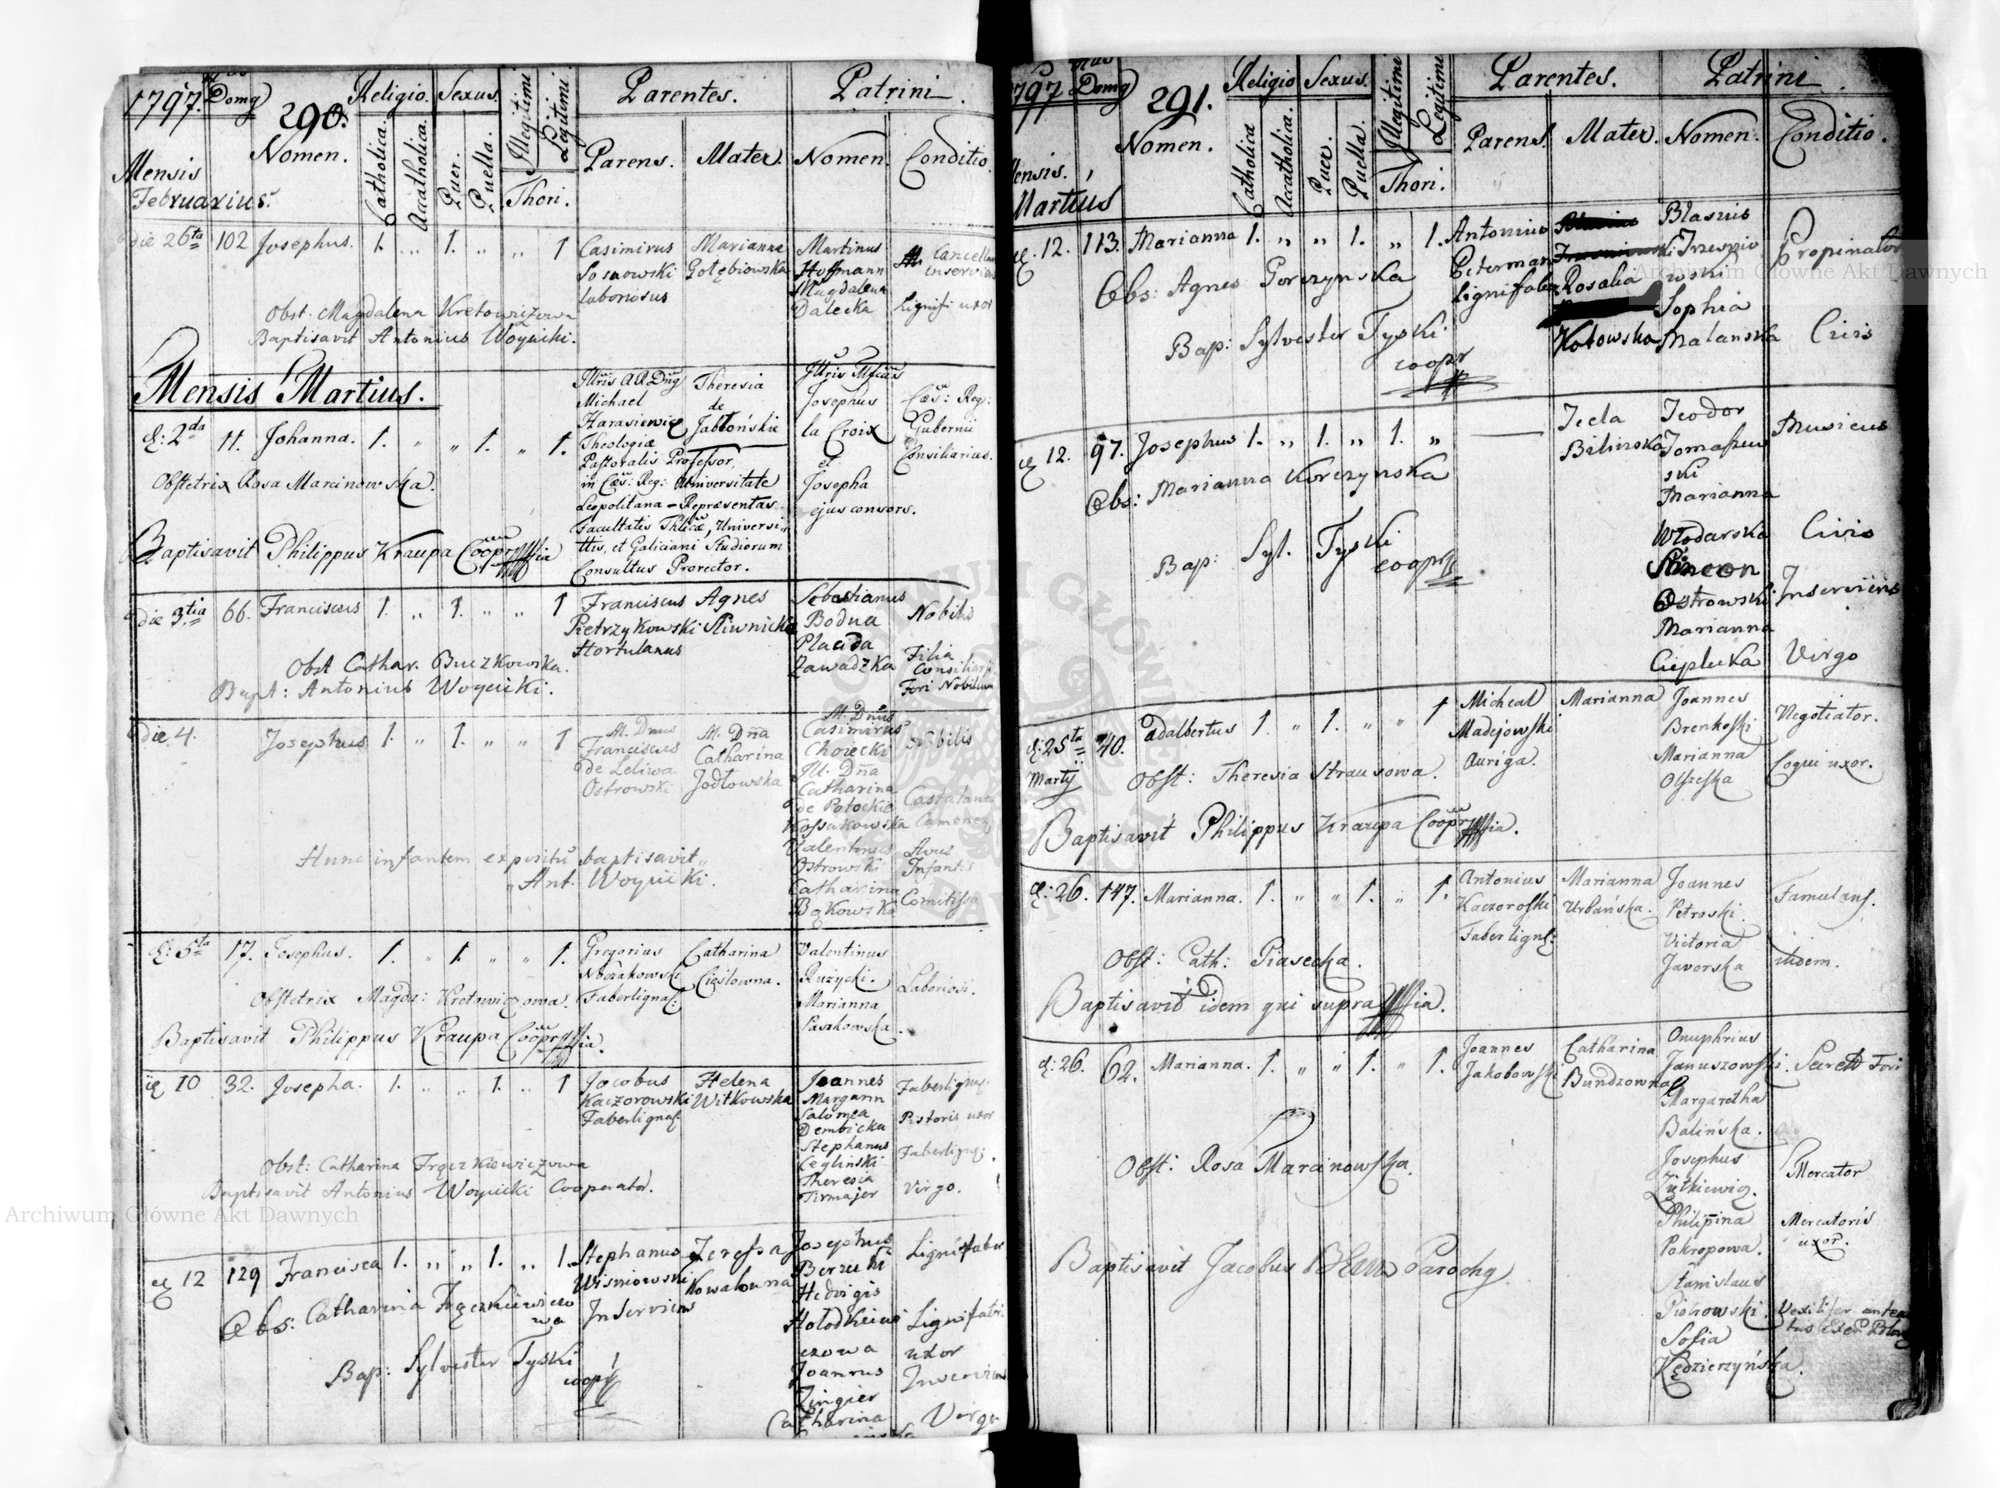 1797. Domq 290. Religio. Sexus. Illegitimi Legitimi. Parentes. Patrini
Mensis Februarius. Nomen. Catholica. Accatholica. Puer. Puella. Thori. Parens. Mater. Nomen. Conditio
die 26ta 102 Josephus. 1. „ 1. „ „ 1 Casimirus Marianna Martinus
Sosnowski Gołębiowska Hoffmann
laboriosus Magdalena
Dalecka Lignifi uxor
Obst. Magdalena Kretowiczowa
Baptisavit Antonius Woycicki.
Mensis Martius.
d: 2da 11. Johanna. 1. „ „ 1. „ 1.
Michael de Josephus Caes: Reg:
Harasiewicz Jabłońskie la Croix Gubernii
Theologiæ et Consiliarius.
Pastoralis Professor, Josepha
in Cæs: Reg: Universitate ejus consors.
Leopolitana Repræsentas
Facultatis Thlicæ, Universi-
ttis, et Galiciani Studiorum
Consultus Prorector.
Obstetrix Rosa Marcinowska.
Baptisavit Philippus Kraupa Coopr
die 3tia 66. Franciscus 1. „ 1. „ „ 1 Franciscus Agnes Sebastianus Nobilis
Pietrzykowski Sliwnicka Bodua
Hortulanus Placida Filia
Zawadzka Consiliarii
Fori Nobilium
Obst Cathar. Buczkowska.
Bapt: Antonius Woycicki.
die. 4. Josephus 1. „ 1. „ „ 1 M. Dnus M. Dña M. Dñus
Franciscus Catharina Casimirus Nobilis
de Leliwa Jodłowska Chojecki
Ostrowski Ill. Dña
Catharina
de Potockie
Kossakowska
Valentinus Avus
Ostrowski Infantis
Catharina
Bąkowska
Hunc infantem expositū baptisavit
Ant. Woycicki.
d: 5ta 17. Josephus. 1. „ 1. „ „ 1. Gregorius Catharina Valentinus
Nowakowski Cieslowna. Rużycki. Laboriosi.
Faberlignar: Marianna
Paszkowska.
Obstetrix Magda: Kretowiczowa.
Baptisavit Philippus Kraupa Coopr
d 10 32. Josepha. 1. „ „ 1. „ 1 Jacobus Helena Joannes Faberlignar.
Kaczorowski Witkowska Margann
Faberlignar. Salomea Pistoris uxor
Dembicka
Stephanus Faberlignar.
Cegliński
Theresia Virgo.
Tirmajer
Obst: Catharina Frączkiewiczowa
Baptisavit Antonius Woycicki Cooperator.
d 12 129 Francisca 1. „ „ 1. „ 1. Stephanus Teressa Josephus Lignifaber
Wisniowski Kowalowna
Inserviens Hedvigis
uxor
Joannes Inserviens
Zingier
Catharina Virgo
Obs: Catharina Frączkiewiczo
wa
Bap: Sylvester Tyski
coopr
1797 Domq 291. Religio Sexus. Illegitimi Legitimi Parentes. Patrini
Mensis. Martius Nomen. Catholica Accatholica. Puer. Puella. Thori. Parens. Mater. Nomen. Conditio.
d. 12. 113. Marianna 1. „ „ 1. „ 1. Antonius Blasius Propinator
Peterman
Lignifaber Rosalia
Sophia
Kotowska Malanska Civis
Obs: Agnes Gorczynska
Bap: Sylvester Tyski
coopr
d 12. 97. Josephus 1. „ 1. „ 1. „ Tecla Teodor Musicus
Bilinska Tomaszew
ski
Marianna
Włodarska Civis
Simeon
Ostrowski Inserviens
Marianna
Ciepluka Virgo
Obs: Marianna Korczynska
Bap: Syl. Tyski
coopr
d: 25ta 40. Adalbertus 1. „ 1. „ „ 1 Micheal Marianna Joannes Negotiator.
Martÿ Madejowski Brenkoski
Auriga. Marianna Coqui uxor.
Olszeska
Obst: Theresia Strausowa.
Baptisavit Philippus Kraupa Coopr
d: 26. 147. Marianna. 1. „ „ 1. „ 1. Antonius Marianna Joannes Famulans.
Kaczoroski Urbańska. Petroski.
Faber lign: Victoria itidem.
Javorska
Obst: Cath: Piasecka.
Baptisavit idem qui supra
d: 26. 62. Marianna. 1. „ „ 1. „ 1. Joannes Catharina Onuphrius
Jakobowski Bundzowna Januszowski. Secret Fori
Margaretha
Balińska.
Josephus Mercator
Zętkiewicz.
Philippina Mercatoris
Pokropowa. uxor.
Stanislaus
Piotrowski.
Sofia
Kędzierzyńska.
Obst: Rosa Marcinowska.
Baptisavit Jacobus Parochq
Archiwum Główne Akt Dawnych
Archiwum Główne Akt Dawnych